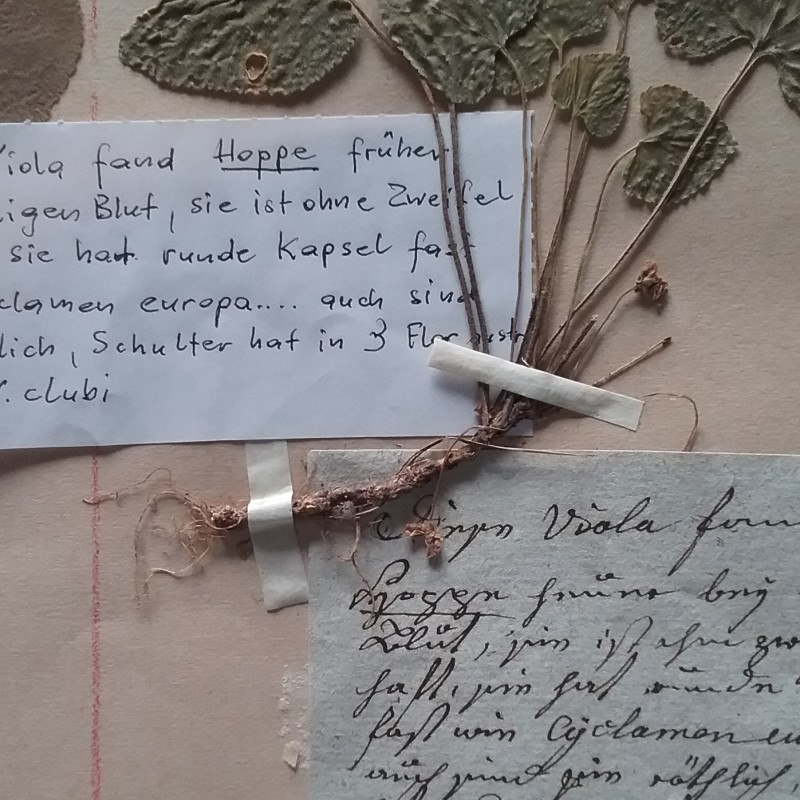 Viola fand Hoppe früher
igen Blut, sie ist ohne Zweifel
sie hat runde Kapsel fast
clamen europa.... auch sind
lich, Schulter hat in 3 Flor
clubi
Diese Viola fan
Hoppe heüer bey
Blüt, sie ist ohne zw
haft, sie hat runde
fast wie Cyclamen eu
auch sind sie röthlich,